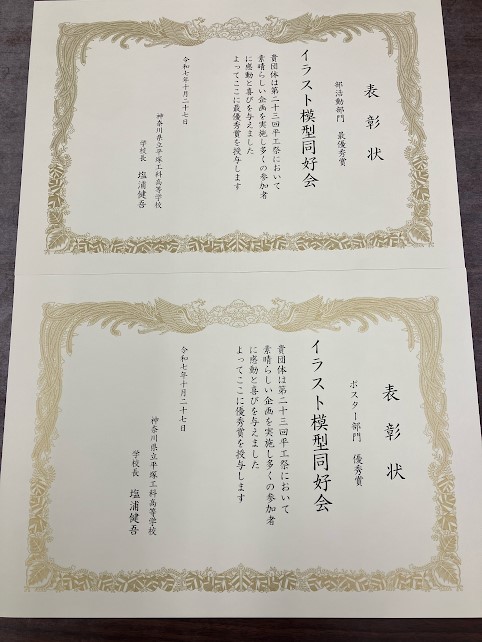 表彰状
部活動部門　最優秀賞
イラスト模型同好会
貴団体は第二十三回平工祭において
素晴らしい企画を実施し多くの参加者
に感動と喜びを与えました
よってここに最優秀賞を授与します
令和七年十月二十七日
神奈川県立平塚工科高等学校
学校長　塩浦健吾
表彰状
ポスター部門　優秀賞
イラスト模型同好会
貴団体は第二十三回平工祭において
素晴らしい企画を実施し多くの参加者
に感動と喜びを与えました
よってここに優秀賞を授与します
令和七年十月二十七日
神奈川県立平塚工科高等学校
学校長　塩浦健吾